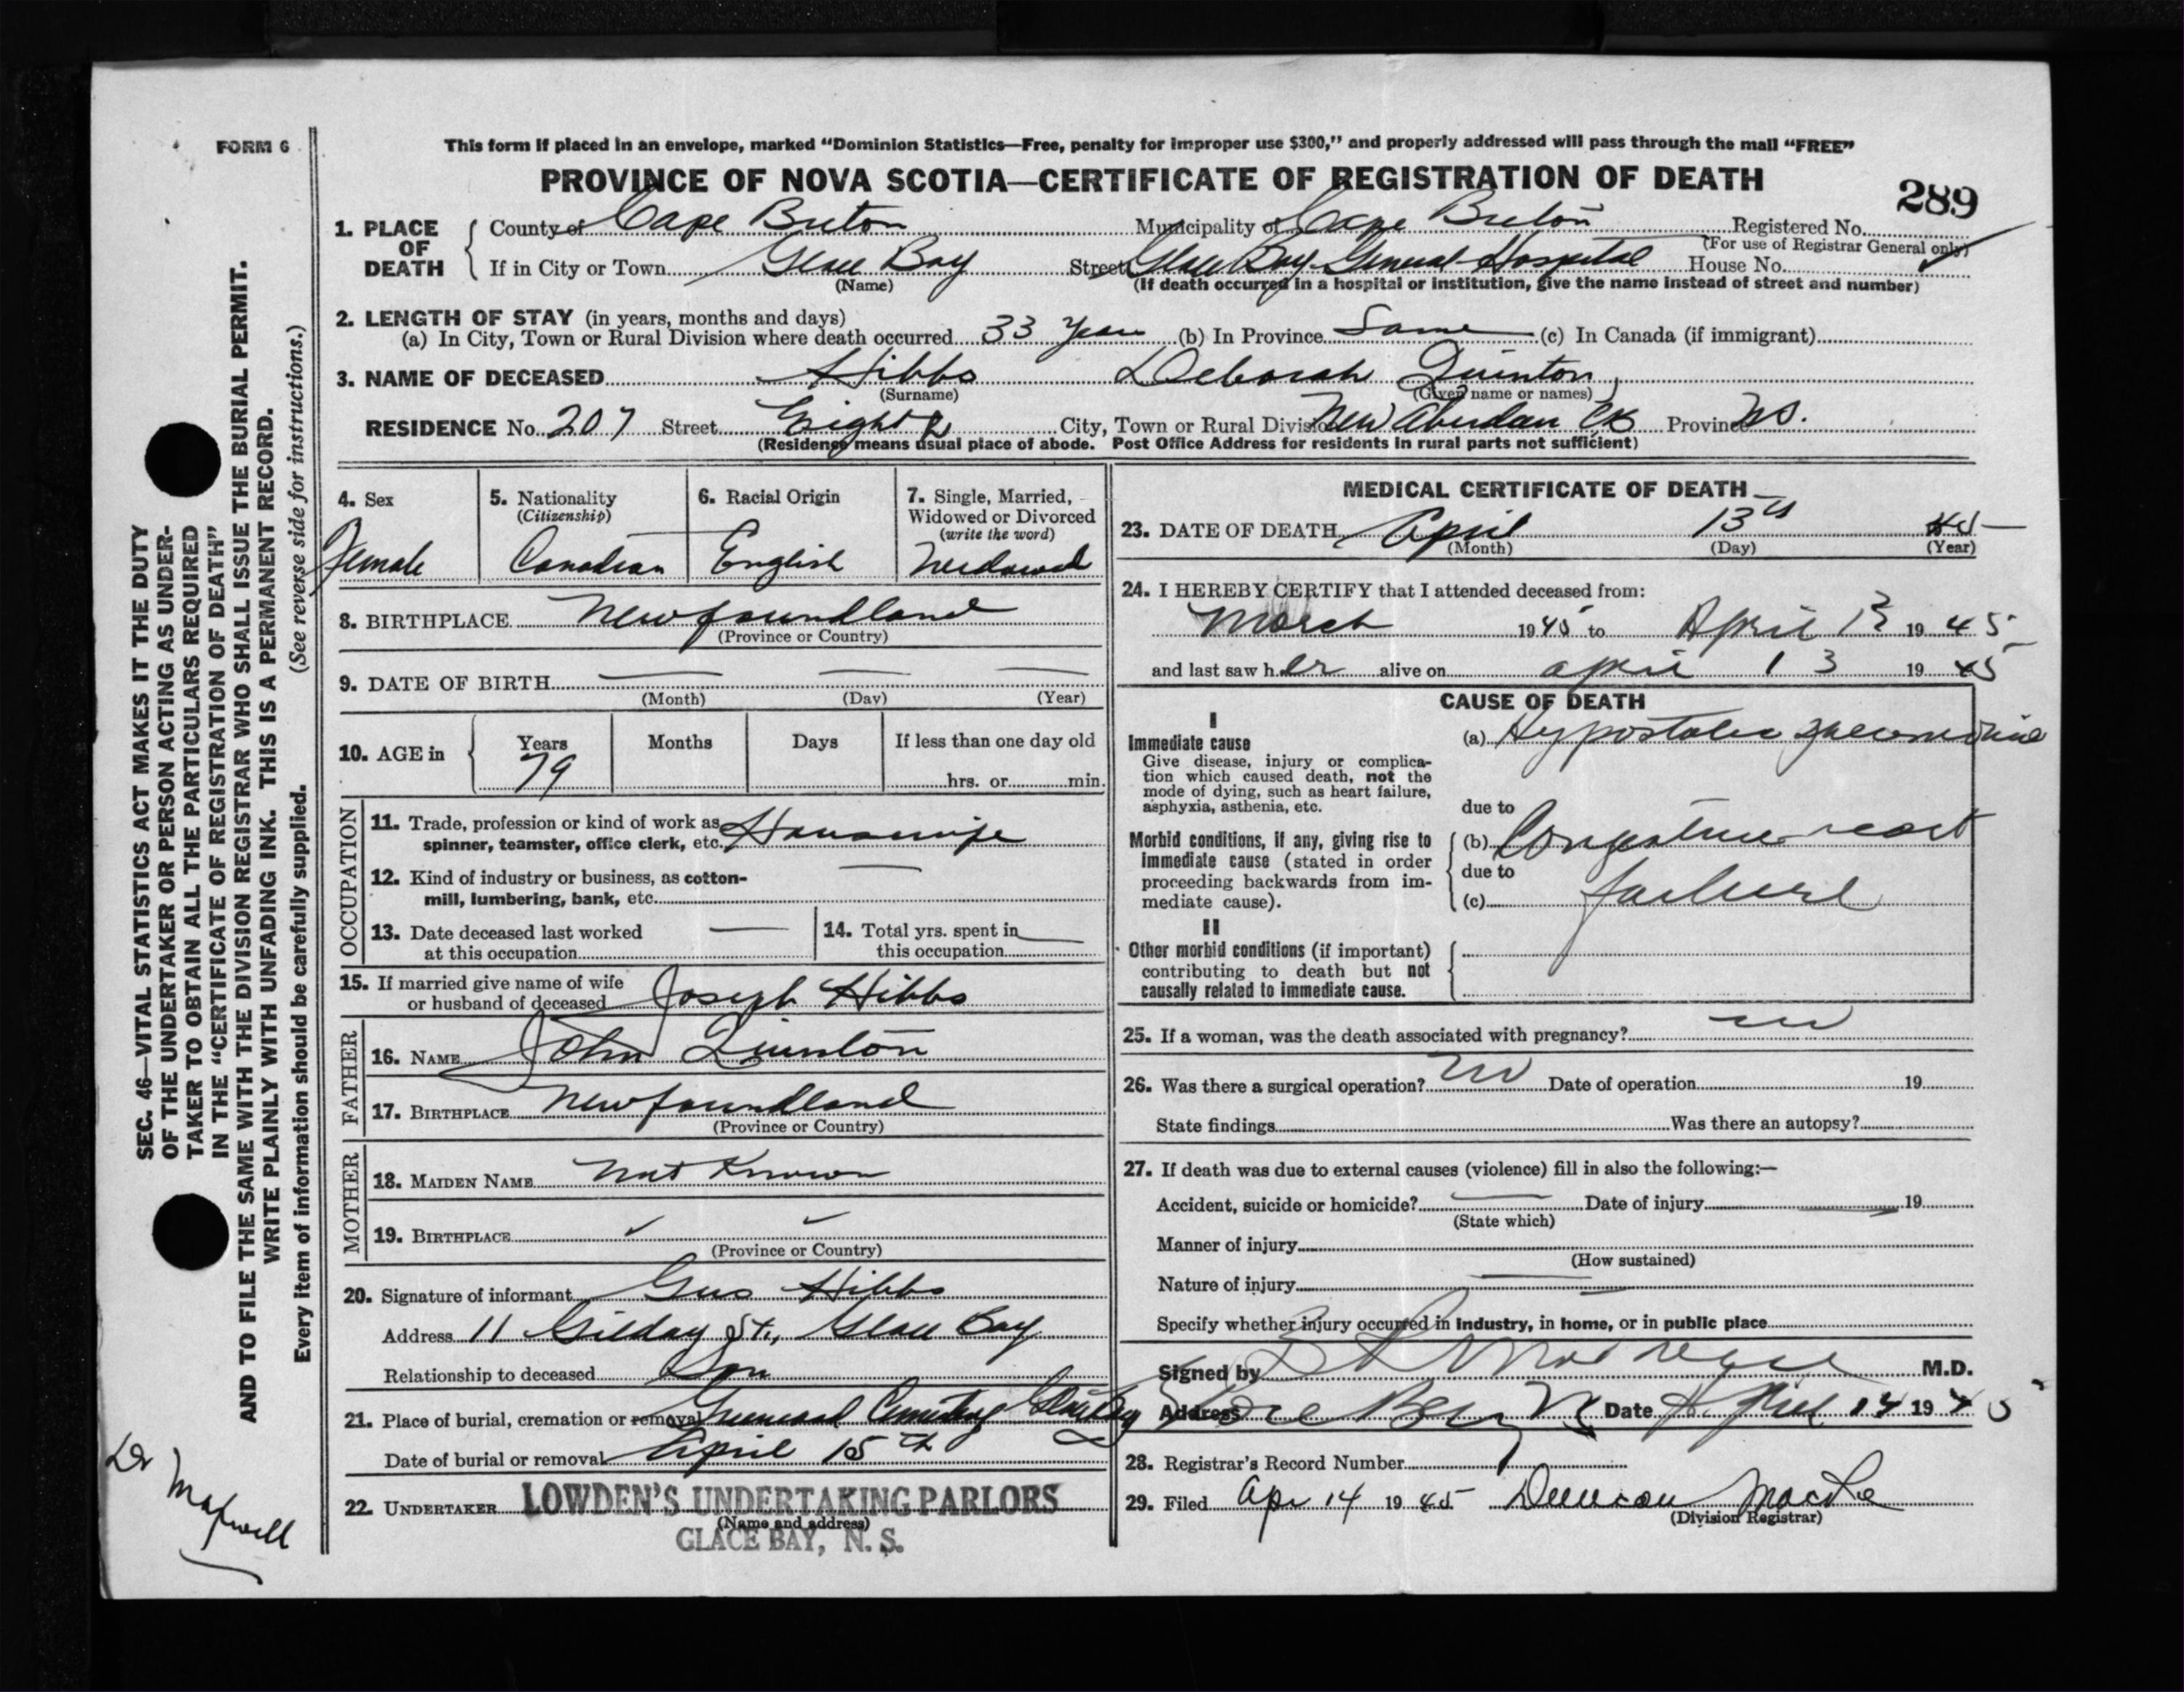 FORM 6
This form if placed in an envelope, marked “Dominion Statistics—Free, penalty for improper use $300,” and properly addressed will pass through the mail “FREE”
PROVINCE OF NOVA SCOTIA—CERTIFICATE OF REGISTRATION OF DEATH
289
1. PLACE OF DEATH
County of Cape Breton Municipality of Cape Breton Registered No.
(For use of Registrar General only)
If in City or Town Glace Bay Street Glace Bay General Hospital House No.
(Name) (If death occurred in a hospital or institution, give the name instead of street and number)
2. LENGTH OF STAY (in years, months and days)
(a) In City, Town or Rural Division where death occurred 33 Years (b) In Province Same (c) In Canada (if immigrant)
3. NAME OF DECEASED Hibbs Deborah Quinton
(Surname) (Given name or names)
RESIDENCE No. 207 Street Eighth City, Town or Rural Division New Aberdeen CB Province NS.
(Residence means usual place of abode. Post Office Address for residents in rural parts not sufficient)
4. Sex
Female
5. Nationality
(Citizenship)
Canadian
6. Racial Origin
English
7. Single, Married,
Widowed or Divorced
(write the word)
Widowed
8. BIRTHPLACE Newfoundland
(Province or Country)
9. DATE OF BIRTH
(Month) (Day) (Year)
10. AGE in
Years Months Days If less than one day old
79 hrs. or min.
OCCUPATION
11. Trade, profession or kind of work as
spinner, teamster, office clerk, etc. Housewife
12. Kind of industry or business, as cotton-
mill, lumbering, bank, etc.
13. Date deceased last worked
at this occupation
14. Total yrs. spent in
this occupation
15. If married give name of wife
or husband of deceased Joseph Hibbs
FATHER
16. NAME John Quinton
17. BIRTHPLACE Newfoundland
(Province or Country)
MOTHER
18. MAIDEN NAME Not Known
19. BIRTHPLACE
(Province or Country)
20. Signature of informant Gus Hibbs
Address 11 Gilday St., Glace Bay
Relationship to deceased Son
21. Place of burial, cremation or removal Greenwood Cemetery Glace Bay
Date of burial or removal April 15th
22. UNDERTAKER LOWDEN'S UNDERTAKING PARLORS
(Name and address)
GLACE BAY, N. S.
MEDICAL CERTIFICATE OF DEATH
23. DATE OF DEATH April 13th 45
(Month) (Day) (Year)
24. I HEREBY CERTIFY that I attended deceased from:
March 1945 to April 13 1945
and last saw her alive on april 13 1945
CAUSE OF DEATH
I
Immediate cause
Give disease, injury or complica-
tion which caused death, not the
mode of dying, such as heart failure,
asphyxia, asthenia, etc.
(a) Hypostatic pneumonia
due to
Morbid conditions, if any, giving rise to
immediate cause (stated in order
proceeding backwards from im-
mediate cause).
(b) Congestive heart
due to
(c) failure
II
Other morbid conditions (if important)
contributing to death but not
causally related to immediate cause.
25. If a woman, was the death associated with pregnancy? no
26. Was there a surgical operation? no Date of operation 19
State findings Was there an autopsy?
27. If death was due to external causes (violence) fill in also the following:—
Accident, suicide or homicide? Date of injury 19
(State which)
Manner of injury
(How sustained)
Nature of injury
Specify whether injury occurred in industry, in home, or in public place
Signed by M.D.
Address Date April 14 1945
28. Registrar's Record Number
29. Filed Apr 14 1945 Duncan
(Division Registrar)
SEC. 46—VITAL STATISTICS ACT MAKES IT THE DUTY
OF THE UNDERTAKER OR PERSON ACTING AS UNDER-
TAKER TO OBTAIN ALL THE PARTICULARS REQUIRED
IN THE “CERTIFICATE OF REGISTRATION OF DEATH”
AND TO FILE THE SAME WITH THE DIVISION REGISTRAR WHO SHALL ISSUE THE BURIAL PERMIT.
WRITE PLAINLY WITH UNFADING INK. THIS IS A PERMANENT RECORD.
Every item of information should be carefully supplied. (See reverse side for instructions.)
Dr
Maxwell